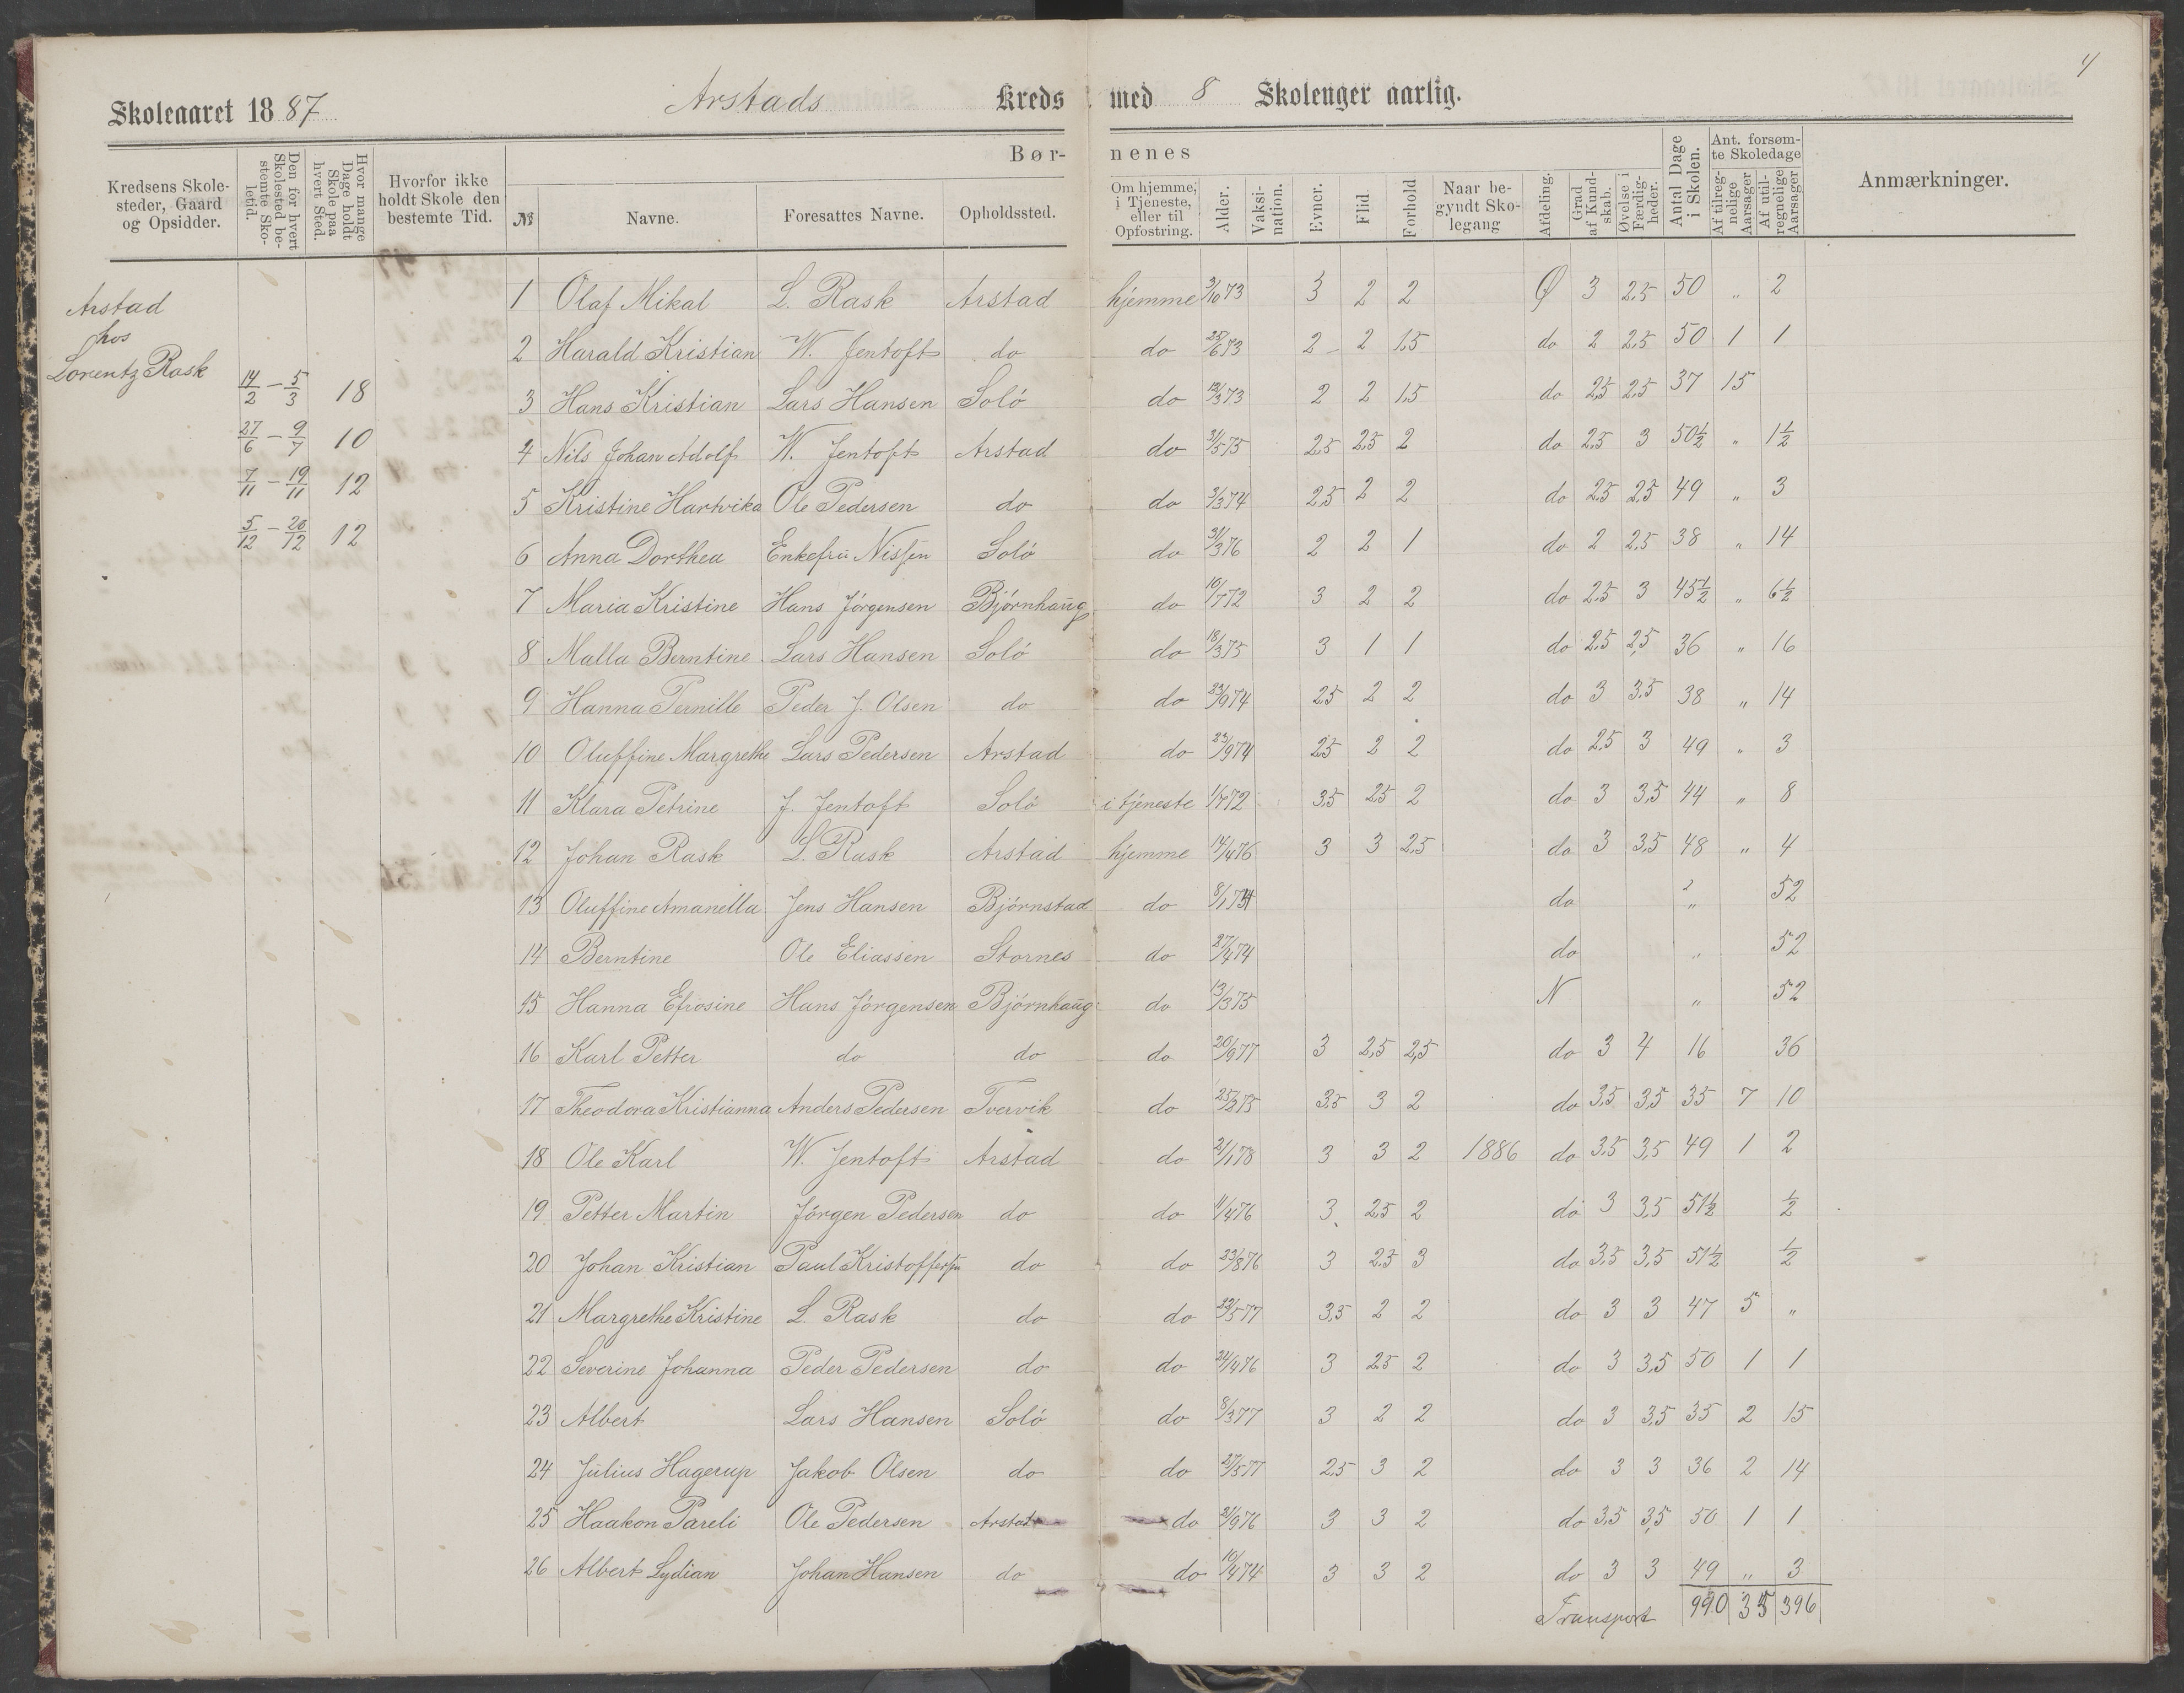 4
Skoleaaret 1887 Arstads Kreds med 8 Skoleuger aarlig.
Kredsens Skolesteder, Gaard og Opsidder.
Den for hvert Skolested bestemte Skoletid.
Hvor mange Dage holdt Skole paa hvert Sted.
Hvorfor ikke holdt Skole den bestemte Tid.
Børnenes
№ Navne. Foresattes Navne. Opholdssted. Om hjemme, i Tjeneste, eller til Opfostring. Alder. Vaksination. Evner. Flid Forhold Naar begyndt Skolegang Afdeling. Grad af Kundskab. Øvelse i Færdigheder. Antal Dage i Skolen. Ant. forsømte Skoledage Af tilregnelige Aarsager Af utilregnelige Aarsager Anmærkninger.
Arstad
hos
Lorentz Rask
14/2 – 5/3 18
27/6 – 9/7 10
7/11 – 19/11 12
5/12 – 20/12 12
1 Olaf Mikal L. Rask Arstad hjemme 3/10 73 3 2 2 Ø 3 2,5 50 „ 2
2 Harald Kristian W. Jentoft do do 25/6 73 2 2 1,5 do 2 2,5 50 1 1
3 Hans Kristian Lars Hansen Solö do 12/3 73 2 2 1,5 do 2,5 2,5 37 15
4 Nils Johan Adolf W. Jentoft Arstad do 31/5 75 2,5 2,5 2 do 2,5 3 50½ „ 1½
5 Kristine Hartvika Ole Pedersen do do 3/3 74 2,5 2 2 do 2,5 2,5 49 „ 3
6 Anna Dorthea Enkefru Nissen Solö do 31/3 76 2 2 1 do 2 2,5 38 „ 14
7 Maria Kristine Hans Jörgensen Björnhaug do 10/7 72 3 2 2 do 2,5 3 45½ „ 6½
8 Malla Berntine Lars Hansen Solö do 18/3 75 3 1 1 do 2,5 2,5 36 „ 16
9 Hanna Pernille Peder J. Olsen do do 23/9 74 2,5 2 2 do 3 3,5 38 „ 14
10 Oluffine Margrethe Lars Pedersen Arstad do 23/9 74 2,5 2 2 do 2,5 3 49 „ 3
11 Klara Petrine J. Jentoft Solö i tjeneste 1/7 72 3,5 2,5 2 do 3 3,5 44 „ 8
12 Johan Rask L. Rask Arstad hjemme 14/4 76 3 3 2,5 do 3 3,5 48 „ 4
13 Oluffine Amanella Jens Hansen Björnstad do 8/1 74 do „ 52
14 Berntine Ole Eliassen Stornes do 27/4 74 do „ 52
15 Hanna Efrosine Hans Jörgensen Björnhaug do 13/3 75 N „ 52
16 Karl Petter do do do 20/9 77 3 2,5 2,5 do 3 4 16 36
17 Theodora Kristianna Anders Pedersen Tvervik do 25/2 75 3,5 3 2 do 3,5 3,5 35 7 10
18 Ole Karl W. Jentoft Arstad do 21/1 78 3 3 2 1886 do 3,5 3,5 49 1 2
19 Petter Martin Jörgen Pedersen do do 11/4 76 3 2,5 2 do 3 3,5 51½ ½
20 Johan Kristian Paul Kristoffersen do do 23/8 76 3 2,5 3 do 3,5 3,5 51½ ½
21 Margrethe Kristine L. Rask do do 22/5 77 3,5 2 2 do 3 3 47 5 „
22 Severine Johanna Peder Pedersen do do 24/4 76 3 2,5 2 do 3 3,5 50 1 1
23 Albert Lars Hansen Solö do 8/3 77 3 2 2 do 3 3,5 35 2 15
24 Julius Hagerup Jakob Olsen do do 27/5 77 2,5 3 2 do 3 3 36 2 14
25 Haakon Pareli Ole Pedersen Arstad do 21/9 76 3 3 2 do 3,5 3,5 50 1 1
26 Albert Lydian Johan Hansen do do 10/4 74 3 3 2 do 3 3 49 „ 3
Transport 990 35 396